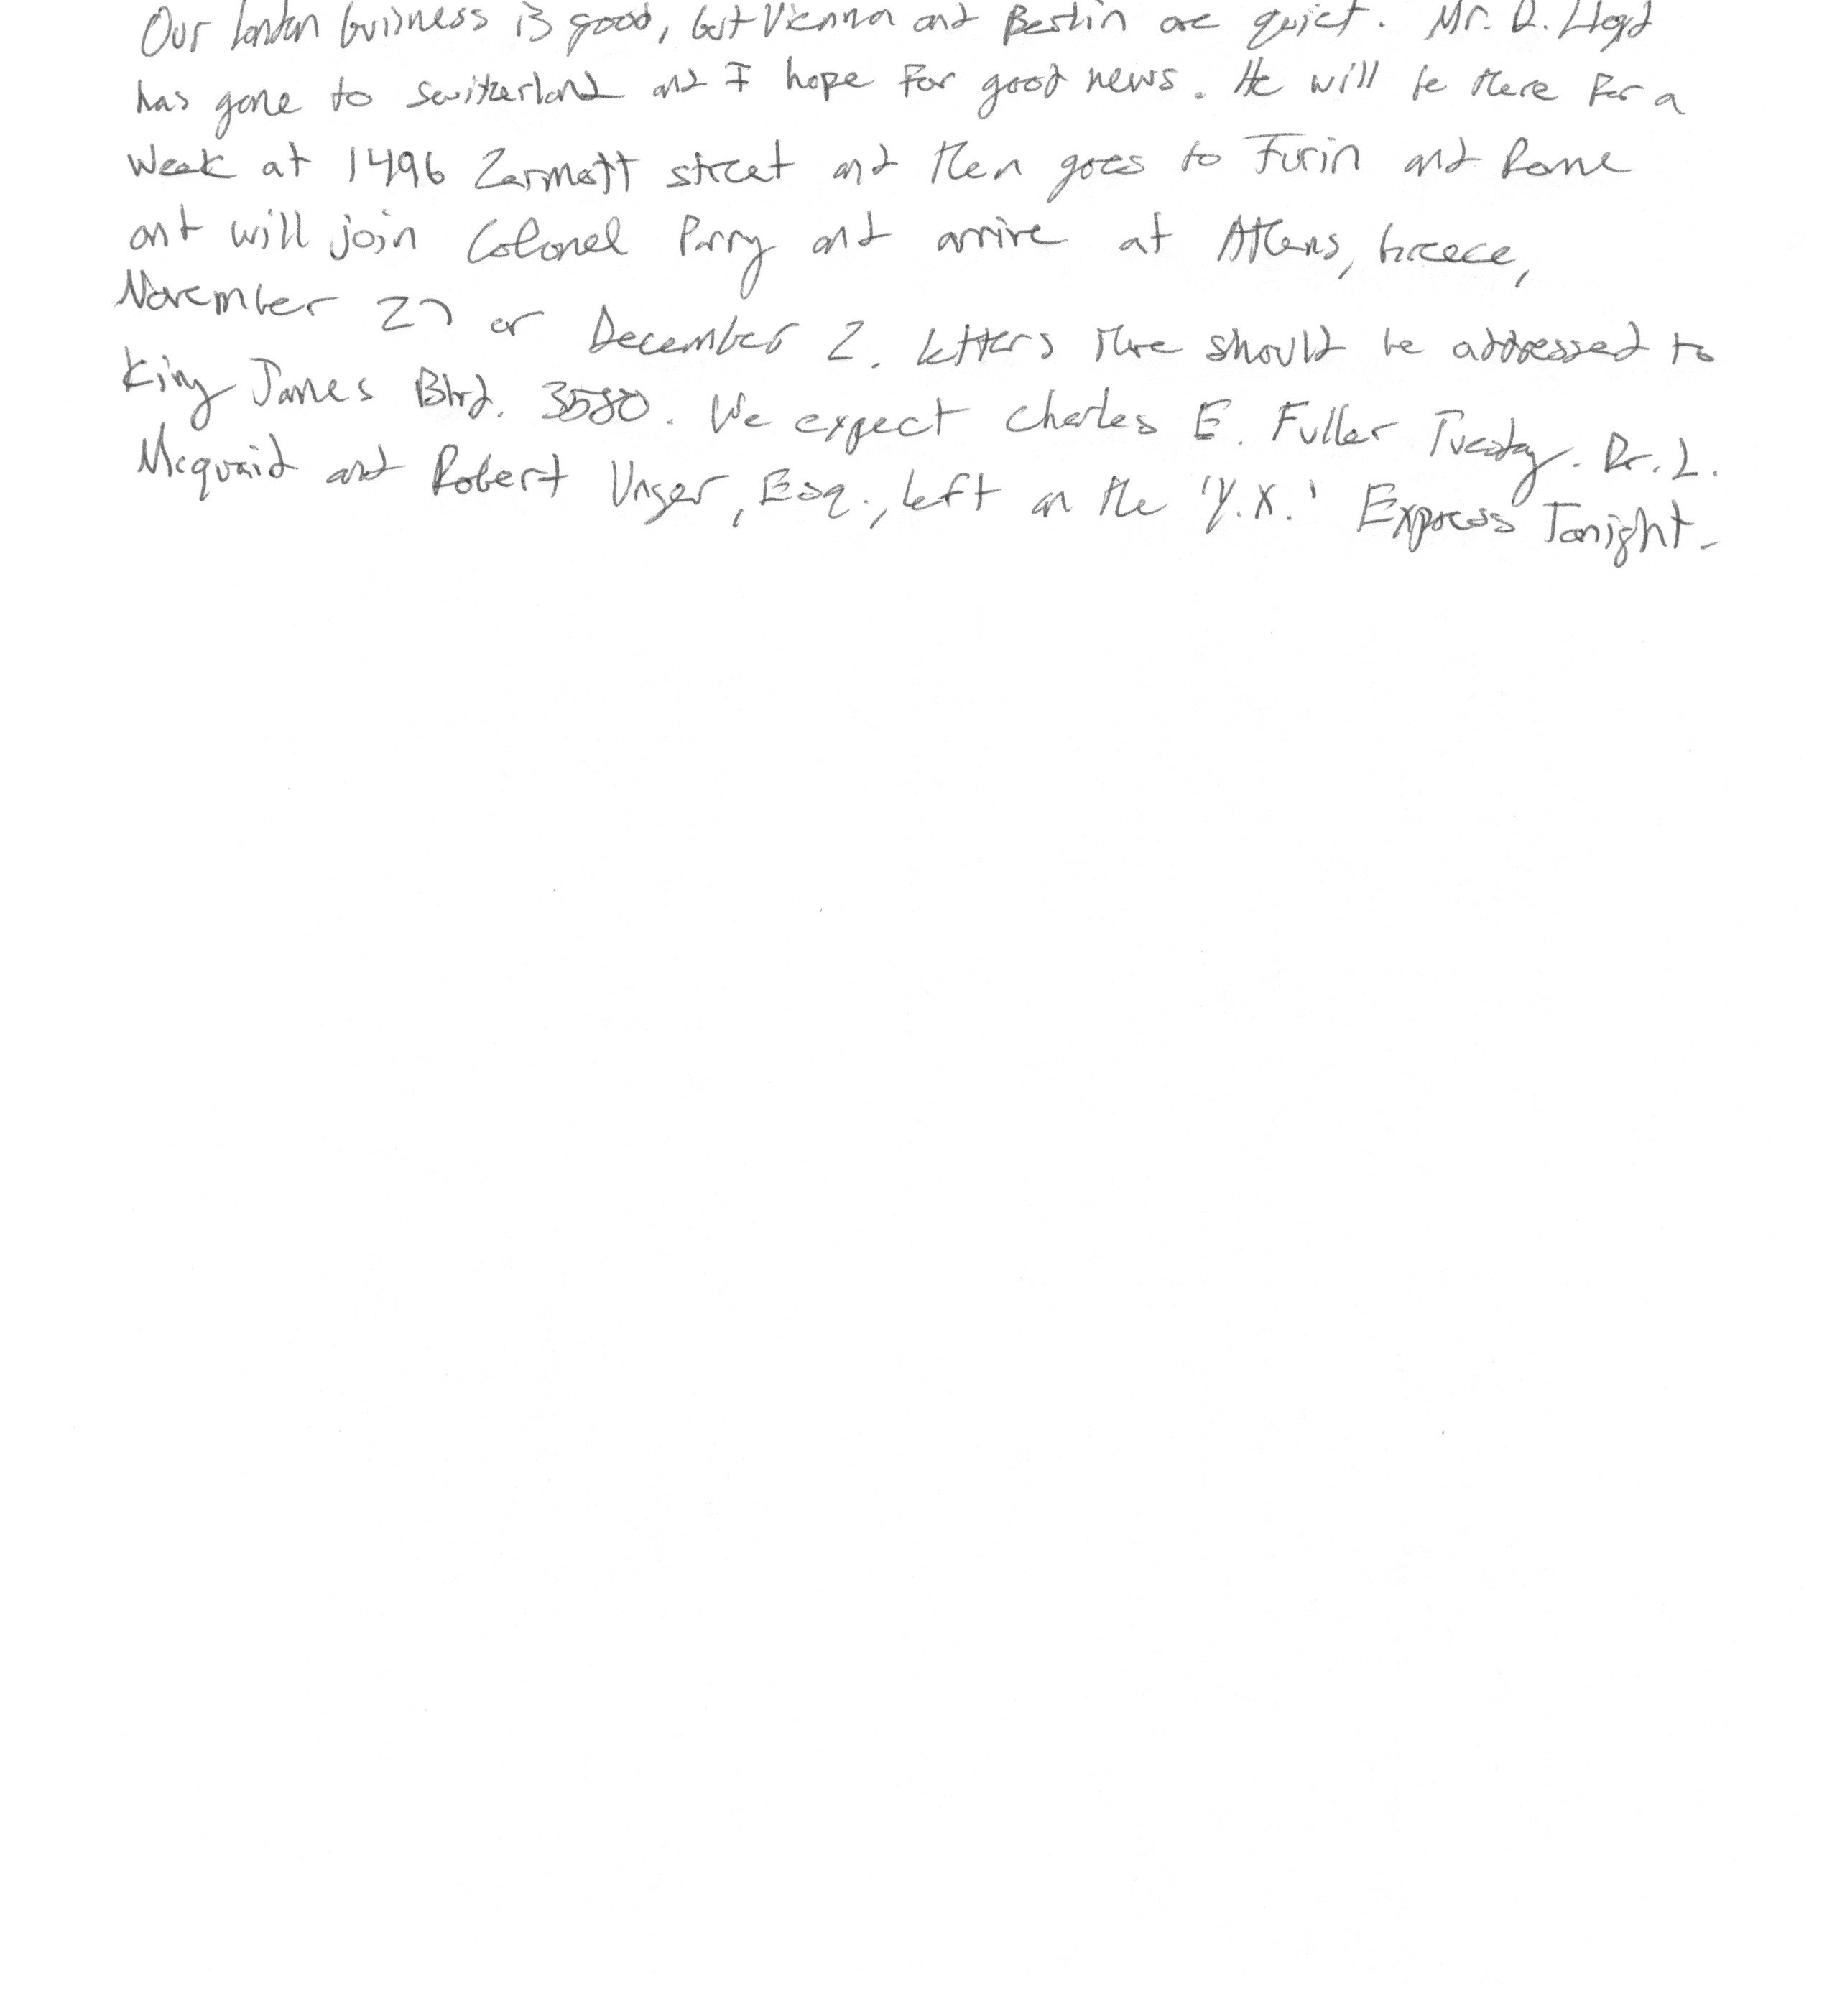 Our London buisness is good, but Vienna and Berlin are quiet. Mr. D. Lloyd
has gone to Switzerland and I hope for good news. He will be there for a
week at 1496 Zermott street and then goes to Turin and Rome
and will join Colonel Parry and arrive at Athens, Greece,
November 27 or December 2. Letters there should be addressed to
King James Blvd. 3580. We expect Charles E. Fuller Tuesday. Dr. L.
Mcquaid and Robert Unger, Esq., left on the 'Y.X.' Express Tonight.